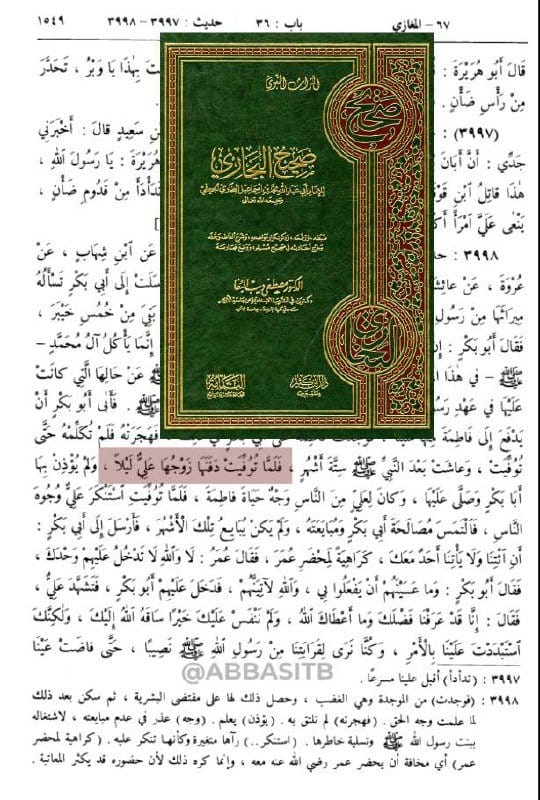 ٦٧ - المغازي باب : ٣٦ حديث : ٣٩٩٧ - ٣٩٩٨ ١٥٤٩
قَالَ أَبُو هُرَيْرَةَ : بِهٰذَا يَا وَبْرُ ، تَحَدَّرَ
مِنْ رَأْسِ ضَأْنٍ .
(٣٩٩٧) : بْنِ سَعِيدٍ قَالَ : أَخْبَرَنِي
جَدِّي : أَنَّ أَبَانَ هُرَيْرَةَ : يَا رَسُولَ اللهِ ،
هٰذَا قَاتِلُ ابْنِ قَوْ تَدَأْدَأَ مِنْ قَدُومِ ضَأْنٍ ،
يَنْعَى عَلَيَّ امْرَأً أَكْ
٣٩٩٨ : حد ، عَنِ ابْنِ شِهَابٍ ، عَنْ
عُرْوَةَ ، عَنْ عَائِشَ سَلَتْ إِلَى أَبِي بَكْرٍ تَسْأَلُهُ
مِيرَاثَهَا مِنْ رَسُولِ بَقِيَ مِنْ خُمُسِ خَيْبَرَ ،
فَقَالَ أَبُو بَكْرٍ : إِن إِنَّمَا يَأْكُلُ آلُ مُحَمَّدٍ -
ﷺ - فِي هٰذَا الم ﷺ عَنْ حَالِهَا الَّتِي كَانَتْ
عَلَيْهَا فِي عَهْدِ رَسُولِ ﷺ . فَأَبَى أَبُو بَكْرٍ أَنْ
يَدْفَعَ إِلَى فَاطِمَةَ فَهَجَرَتْهُ فَلَمْ تُكَلِّمْهُ حَتَّى
تُوُفِّيَتْ ، وَعَاشَتْ بَعْدَ النَّبِيِّ ﷺ سِتَّةَ أَشْهُرٍ ، فَلَمَّا تُوُفِّيَتْ دَفَنَهَا زَوْجُهَا عَلِيٌّ لَيْلاً ، وَلَمْ يُؤْذِنْ بِهَا
أَبَا بَكْرٍ وَصَلَّى عَلَيْهَا ، وَكَانَ لِعَلِيٍّ مِنَ النَّاسِ وَجْهٌ حَيَاةَ فَاطِمَةَ ، فَلَمَّا تُوُفِّيَتِ اسْتَنْكَرَ عَلِيٌّ وُجُوهَ
النَّاسِ ، فَالْتَمَسَ مُصَالَحَةَ أَبِي بَكْرٍ وَمُبَايَعَتَهُ ، وَلَمْ يَكُنْ يُبَايِعُ تِلْكَ الْأَشْهُرَ ، فَأَرْسَلَ إِلَى أَبِي بَكْرٍ :
أَنِ ائْتِنَا وَلَا يَأْتِنَا أَحَدٌ مَعَكَ ، كَرَاهِيَةً لِمَحْضَرِ عُمَرَ ، فَقَالَ عُمَرُ : لَا وَاللهِ لَا تَدْخُلُ عَلَيْهِمْ وَحْدَكَ ،
فَقَالَ أَبُو بَكْرٍ : وَمَا عَسَيْتَهُمْ أَنْ يَفْعَلُوا بِي ، وَاللهِ لَآتِيَنَّهُمْ ، فَدَخَلَ عَلَيْهِمْ أَبُو بَكْرٍ ، فَتَشَهَّدَ عَلِيٌّ ،
فَقَالَ : إِنَّا قَدْ عَرَفْنَا فَضْلَكَ وَمَا أَعْطَاكَ اللهُ ، وَلَمْ نَنْفَسْ عَلَيْكَ خَيْرًا سَاقَهُ اللهُ إِلَيْكَ ، وَلٰكِنَّكَ
اسْتَبْدَدْتَ عَلَيْنَا بِالْأَمْرِ ، وَكُنَّا نَرَى لِقَرَابَتِنَا مِنْ رَسُولِ اللهِ ﷺ نَصِيبًا ، حَتَّى فَاضَتْ عَيْنَا
@ABBASITB
٣٩٩٧ : (تدأدأ) أقبل علينا مسرعًا .
٣٩٩٨ : (فوجدت) من الموجدة وهي الغضب ، وحصل ذلك لها على مقتضى البشرية ، ثم سكن بعد ذلك
لما علمت وجه الحق . (فهجرته) لم تلتق به . (يؤذن) يعلم . (وجه) عذر في عدم مبايعته ، لاشتغاله
ببنت رسول الله ﷺ وتسلية خاطرها . (استنكر..) رآها متغيرة وكأنها تنكر عليه . (كراهية لمحضر
عمر) أي مخافة أن يحضر عمر رضي الله عنه معه ، وإنما كره ذلك لأن حضوره قد يكثر المعاتبة .
التراث النبوي
صحيح البخاري
صحيح
البخاري